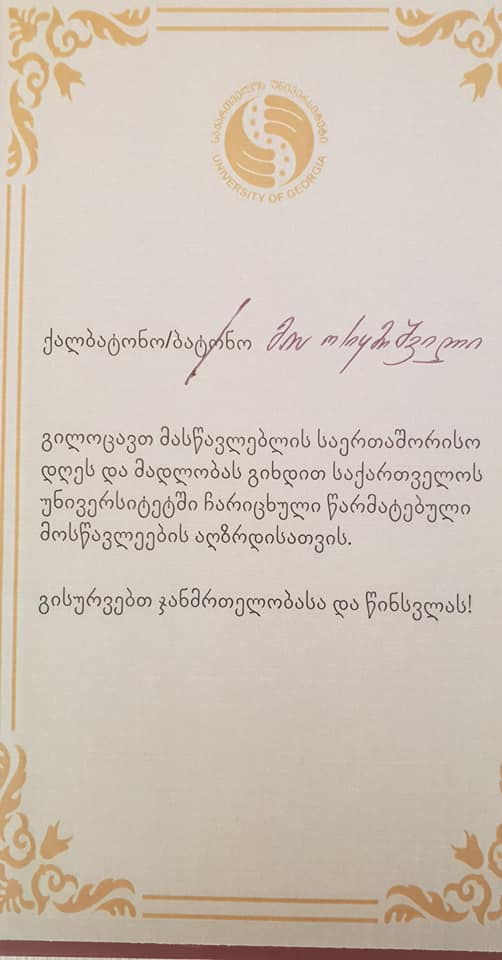 საქართველოს უნივერსიტეტი
UNIVERSITY OF GEORGIA
ქალბატონო/ბატონო
გილოცავთ მასწავლებლის საერთაშორისო
დღეს და მადლობას გიხდით საქართველოს
უნივერსიტეტში ჩარიცხული წარმატებული
მოსწავლეების აღზრდისათვის.
გისურვებთ ჯანმრთელობასა და წინსვლას!